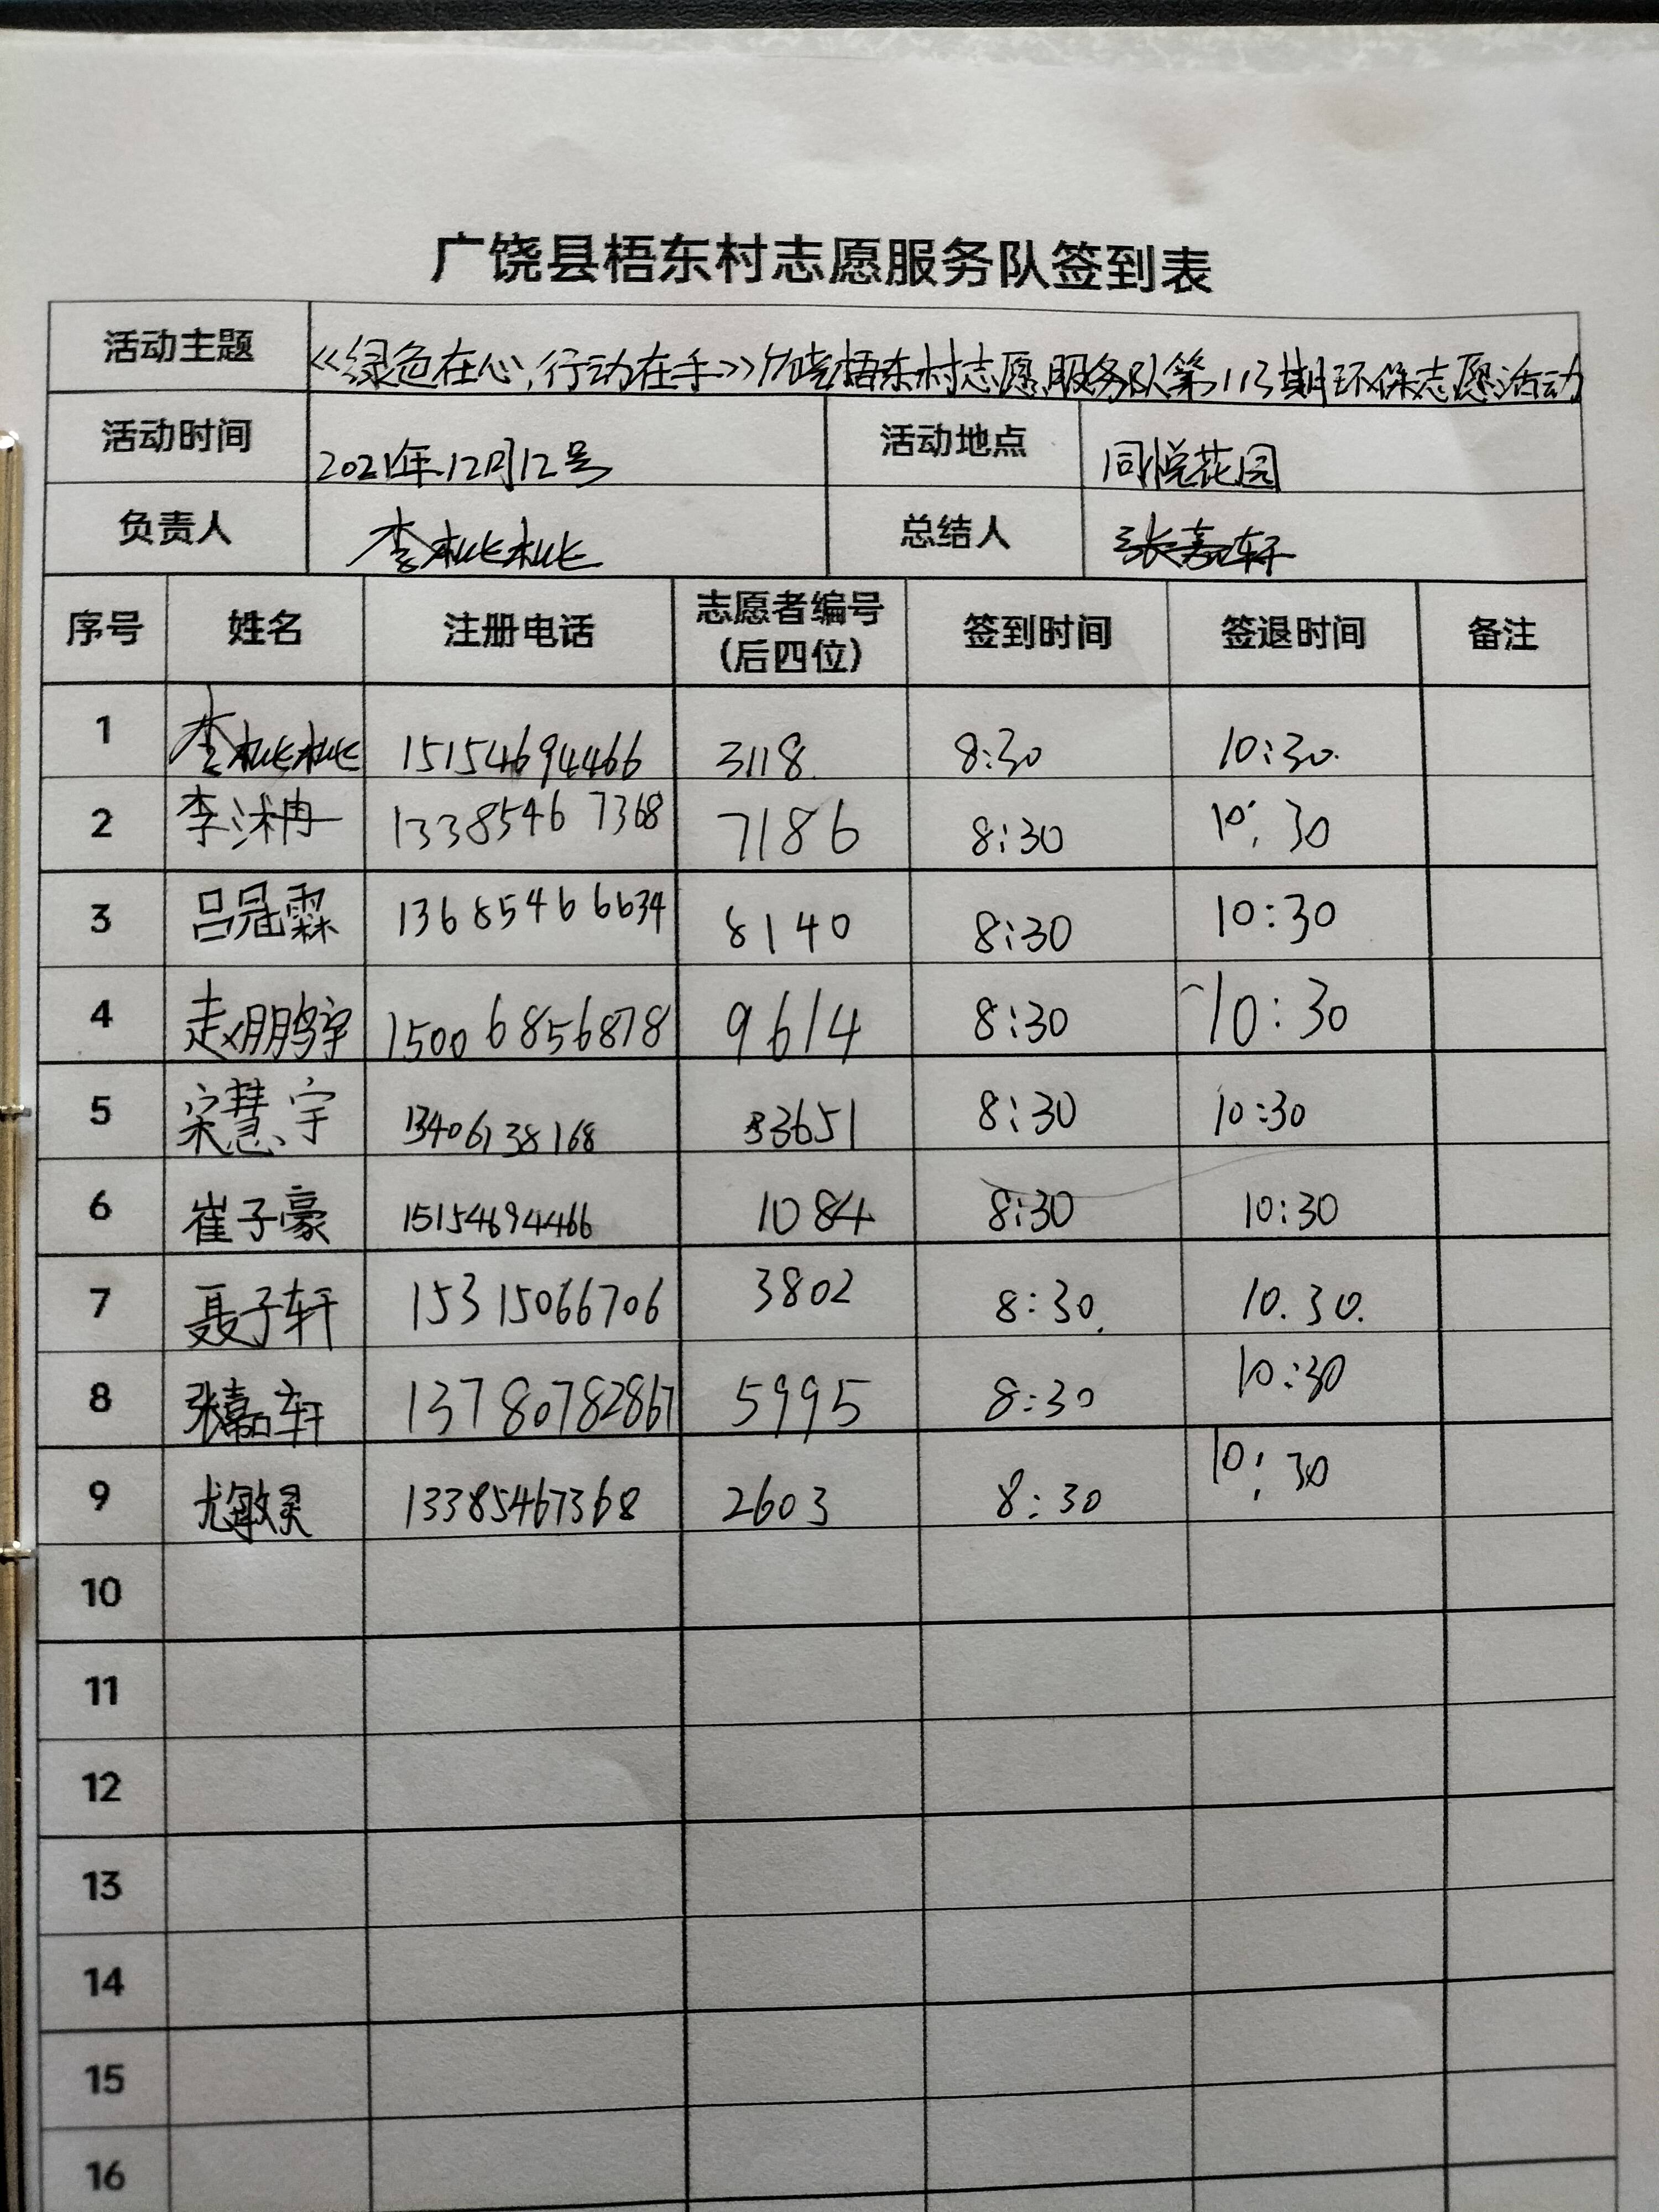 广饶县梧东村志愿服务队签到表
活动主题 《绿色在心,行动在手》广饶梧东村志愿服务队第113期环保志愿活动
活动时间 2021年12月12号 活动地点 同悦花园
负责人 李桃桃 总结人 张嘉轩
序号 姓名 注册电话 志愿者编号 签到时间 签退时间 备注
(后四位)
1 李桃桃 15154694466 3118 8:30 10:30.
2 李沭冉 13385467368 7186 8:30 10:30
3 吕冠霖 13685466634 8140 8:30 10:30
4 赵鹏宇 15006856878 9614 8:30 10:30
5 宋慧宇 13406138168 3651 8:30 10:30
6 崔子豪 15154694466 1084 8:30 10:30
7 聂子轩 15315066706 3802 8:30. 10.30.
8 张嘉轩 13780782867 5995 8:30 10:30
9 尤敏灵 13385467368 2603 8:30 10:30
10
11
12
13
14
15
16